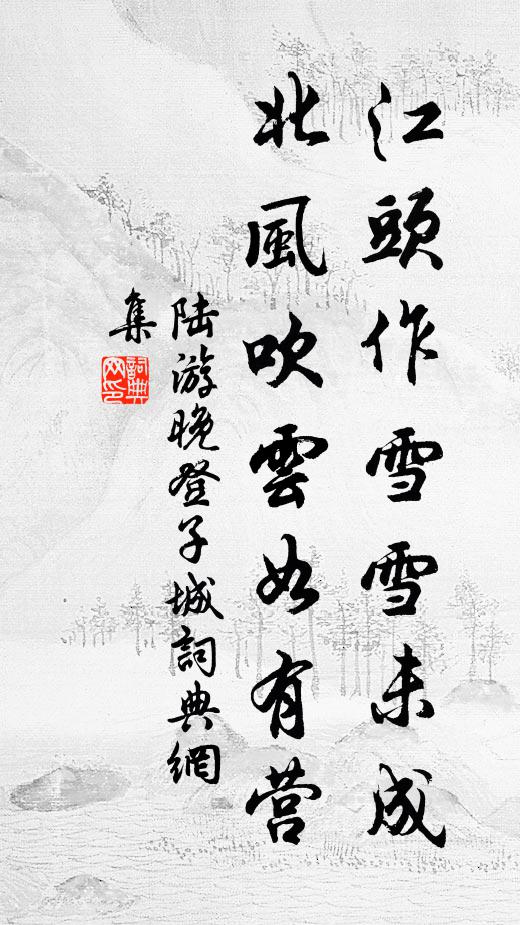 江頭作雪雪未成
北風吹雲如有营
陆游晚登子城詞典網
集
詞典网印